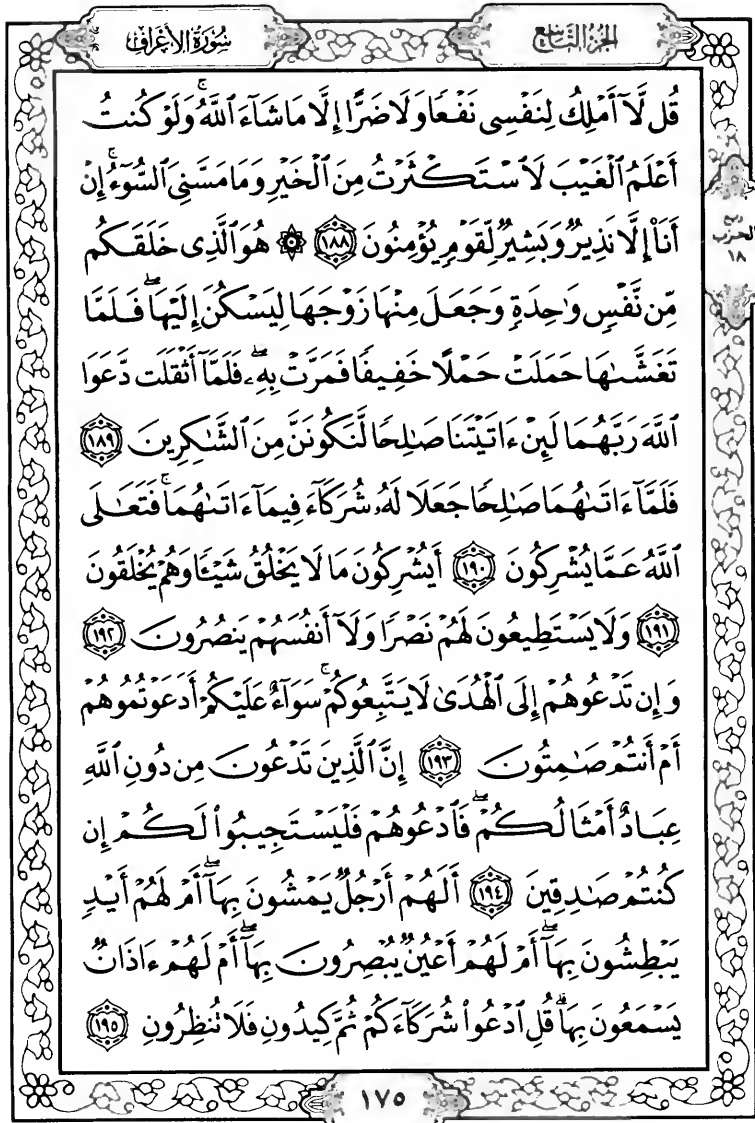 الجزء التاسع
سورة الأعراف
قُل لَّآ أَمْلِكُ لِنَفْسِى نَفْعًا وَلَا ضَرًّا إِلَّا مَا شَآءَ ٱللَّهُ ۚ وَلَوْ كُنتُ
أَعْلَمُ ٱلْغَيْبَ لَٱسْتَكْثَرْتُ مِنَ ٱلْخَيْرِ وَمَا مَسَّنِىَ ٱلسُّوٓءُ ۚ إِنْ
أَنَا۠ إِلَّا نَذِيرٌ وَبَشِيرٌ لِّقَوْمٍ يُؤْمِنُونَ ١٨٨ ۞ هُوَ ٱلَّذِى خَلَقَكُم
مِّن نَّفْسٍ وَٰحِدَةٍ وَجَعَلَ مِنْهَا زَوْجَهَا لِيَسْكُنَ إِلَيْهَا ۖ فَلَمَّا
تَغَشَّىٰهَا حَمَلَتْ حَمْلًا خَفِيفًا فَمَرَّتْ بِهِۦ ۖ فَلَمَّآ أَثْقَلَت دَّعَوَا
ٱللَّهَ رَبَّهُمَا لَئِنْ ءَاتَيْتَنَا صَٰلِحًا لَّنَكُونَنَّ مِنَ ٱلشَّٰكِرِينَ ١٨٩
فَلَمَّآ ءَاتَىٰهُمَا صَٰلِحًا جَعَلَا لَهُۥ شُرَكَآءَ فِيمَآ ءَاتَىٰهُمَا ۚ فَتَعَٰلَى
ٱللَّهُ عَمَّا يُشْرِكُونَ ١٩٠ أَيُشْرِكُونَ مَا لَا يَخْلُقُ شَيْـًٔا وَهُمْ يُخْلَقُونَ
١٩١ وَلَا يَسْتَطِيعُونَ لَهُمْ نَصْرًا وَلَآ أَنفُسَهُمْ يَنصُرُونَ ١٩٢
وَإِن تَدْعُوهُمْ إِلَى ٱلْهُدَىٰ لَا يَتَّبِعُوكُمْ ۚ سَوَآءٌ عَلَيْكُمْ أَدَعَوْتُمُوهُمْ
أَمْ أَنتُمْ صَٰمِتُونَ ١٩٣ إِنَّ ٱلَّذِينَ تَدْعُونَ مِن دُونِ ٱللَّهِ
عِبَادٌ أَمْثَالُكُمْ ۖ فَٱدْعُوهُمْ فَلْيَسْتَجِيبُوا۟ لَكُمْ إِن
كُنتُمْ صَٰدِقِينَ ١٩٤ أَلَهُمْ أَرْجُلٌ يَمْشُونَ بِهَآ ۖ أَمْ لَهُمْ أَيْدٍ
يَبْطِشُونَ بِهَآ ۖ أَمْ لَهُمْ أَعْيُنٌ يُبْصِرُونَ بِهَآ ۖ أَمْ لَهُمْ ءَاذَانٌ
يَسْمَعُونَ بِهَا ۗ قُلِ ٱدْعُوا۟ شُرَكَآءَكُمْ ثُمَّ كِيدُونِ فَلَا تُنظِرُونِ ١٩٥
الحزب
١٨
١٧٥